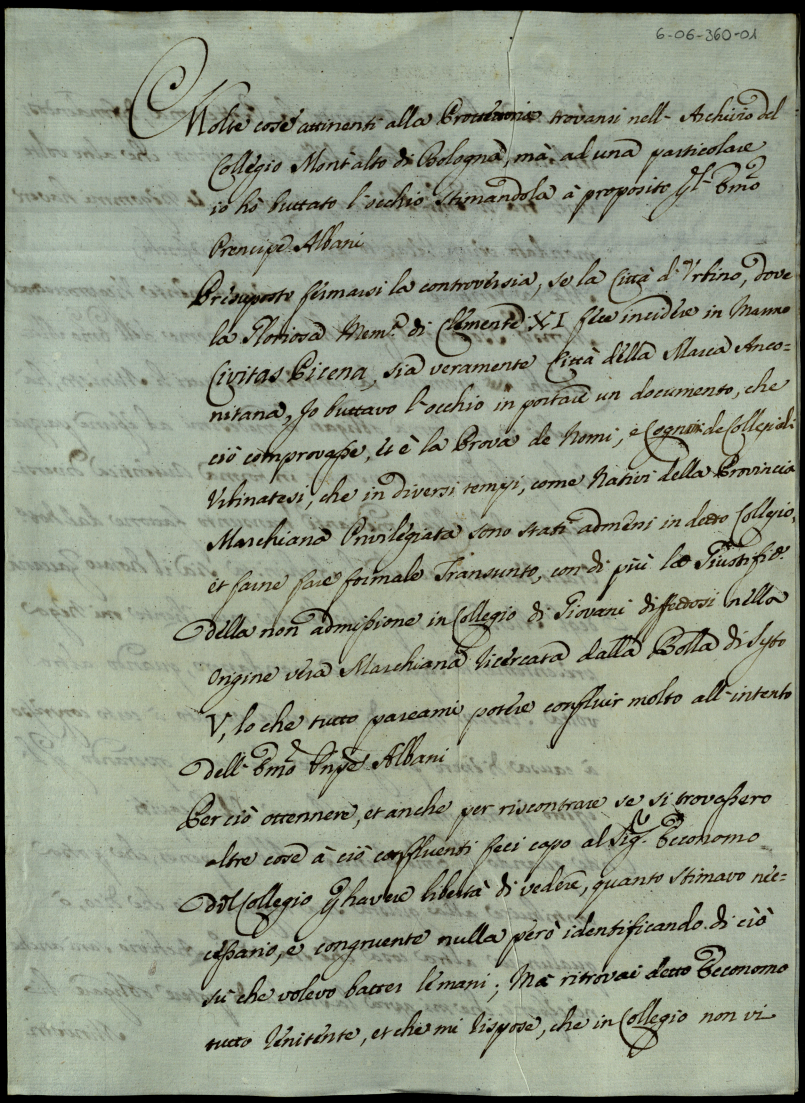 6-06-360-01
Molte cose attinenti alla trovansi nell'Archivio del
Collegio Montalto di Bologna, mà ad una particolare
io hò buttato l'occhio stimandola à proposito
Prencipe Albani
Presuposto fermarsi la controversia, se la Città d'Urbino, dove
la Gloriosa Mem.ª di Clemente XI fece incidere in Marmo
Civitas Picena, sia veramente Città della Marca Anco=
nitana, Io buttavo l'occhio in portare un documento, che
ciò comprovasse, et è la Prova de Nomi, e Cognomi de Collegiali
Urbinatesi, che in diversi tempi, come Nativi della Provincia
Marchiana Privilegiata sono stati admessi in detto Collegio,
et farne fare formale Transunto, con di più le Giustific.
della non admissione in Collegio di Giovani diffettosi nella
origine vera Marchiana ricercata dalla Bolla di Sisto
V, lo che tutto pareami potere confluir molto all'intento
dell'Em̃o Albani
Per ciò ottennere, et anche per riscontrare se si trovassero
altre cose à ciò confluenti feci capo al Sig.r Economo
del Collegio havere libertà di vedere, quanto stimavo ne=
cessario, e congruente nulla però identificando di ciò
sù che volevo batter le mani; Mà ritrovai detto Economo
tutto renitente, et che mi rispose, che in Collegio non vi